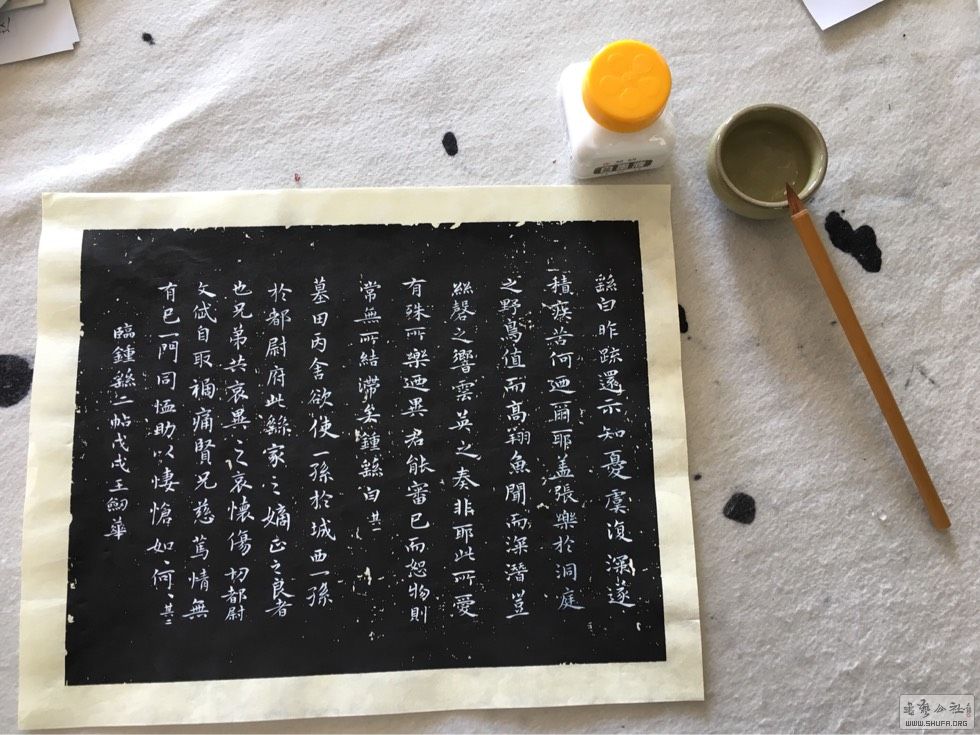 繇白昨疏還示知憂虞復深遂
積疾苦何迺爾耶盖張樂於洞庭
之野鳥值而高翔魚聞而深潛豈
絲磬之響雲英之奏非耶此所愛
有殊所樂迺異君能審己而恕物則
常無所結滯矣鍾繇白 其一
墓田丙舍欲使一孫於城西一孫
於都尉府此繇家之嫡正之良者
也兄弟共哀異之哀懷傷切都尉
文岱自取禍痛賢兄慈篤情無
有已一門同恤助以悽愴如何 其二
臨鍾繇二帖戊戌王劒華
白墨液
書藝公社
WWW.SHUFA.ORG